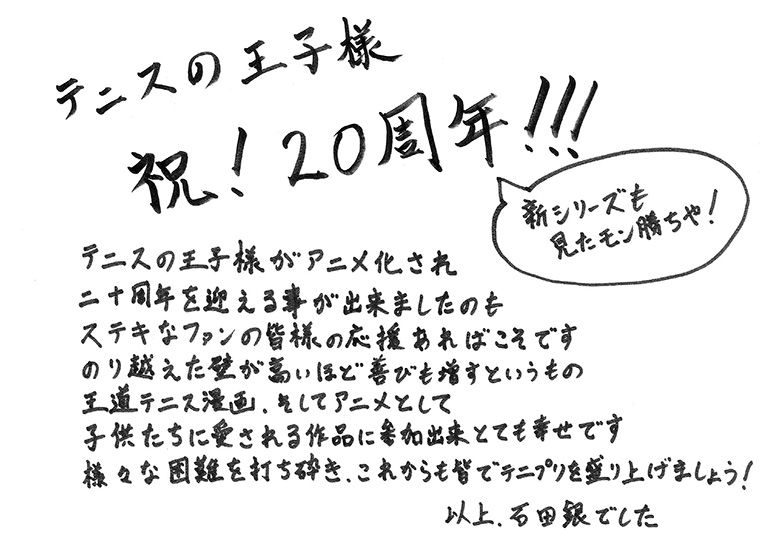 テニスの王子様
祝！20周年!!!
新シリーズも
見たモン勝ちや！
テニスの王子様がアニメ化され
二十周年を迎える事が出来ましたのも
ステキなファンの皆様の応援あればこそです
のり越えた壁が高いほど喜びも増すというもの
王道テニス漫画、そしてアニメとして
子供たちに愛される作品に参加出来とても幸せです
様々な困難を打ち砕き、これからも皆でテニプリを盛り上げましょう！
以上、石田銀でした